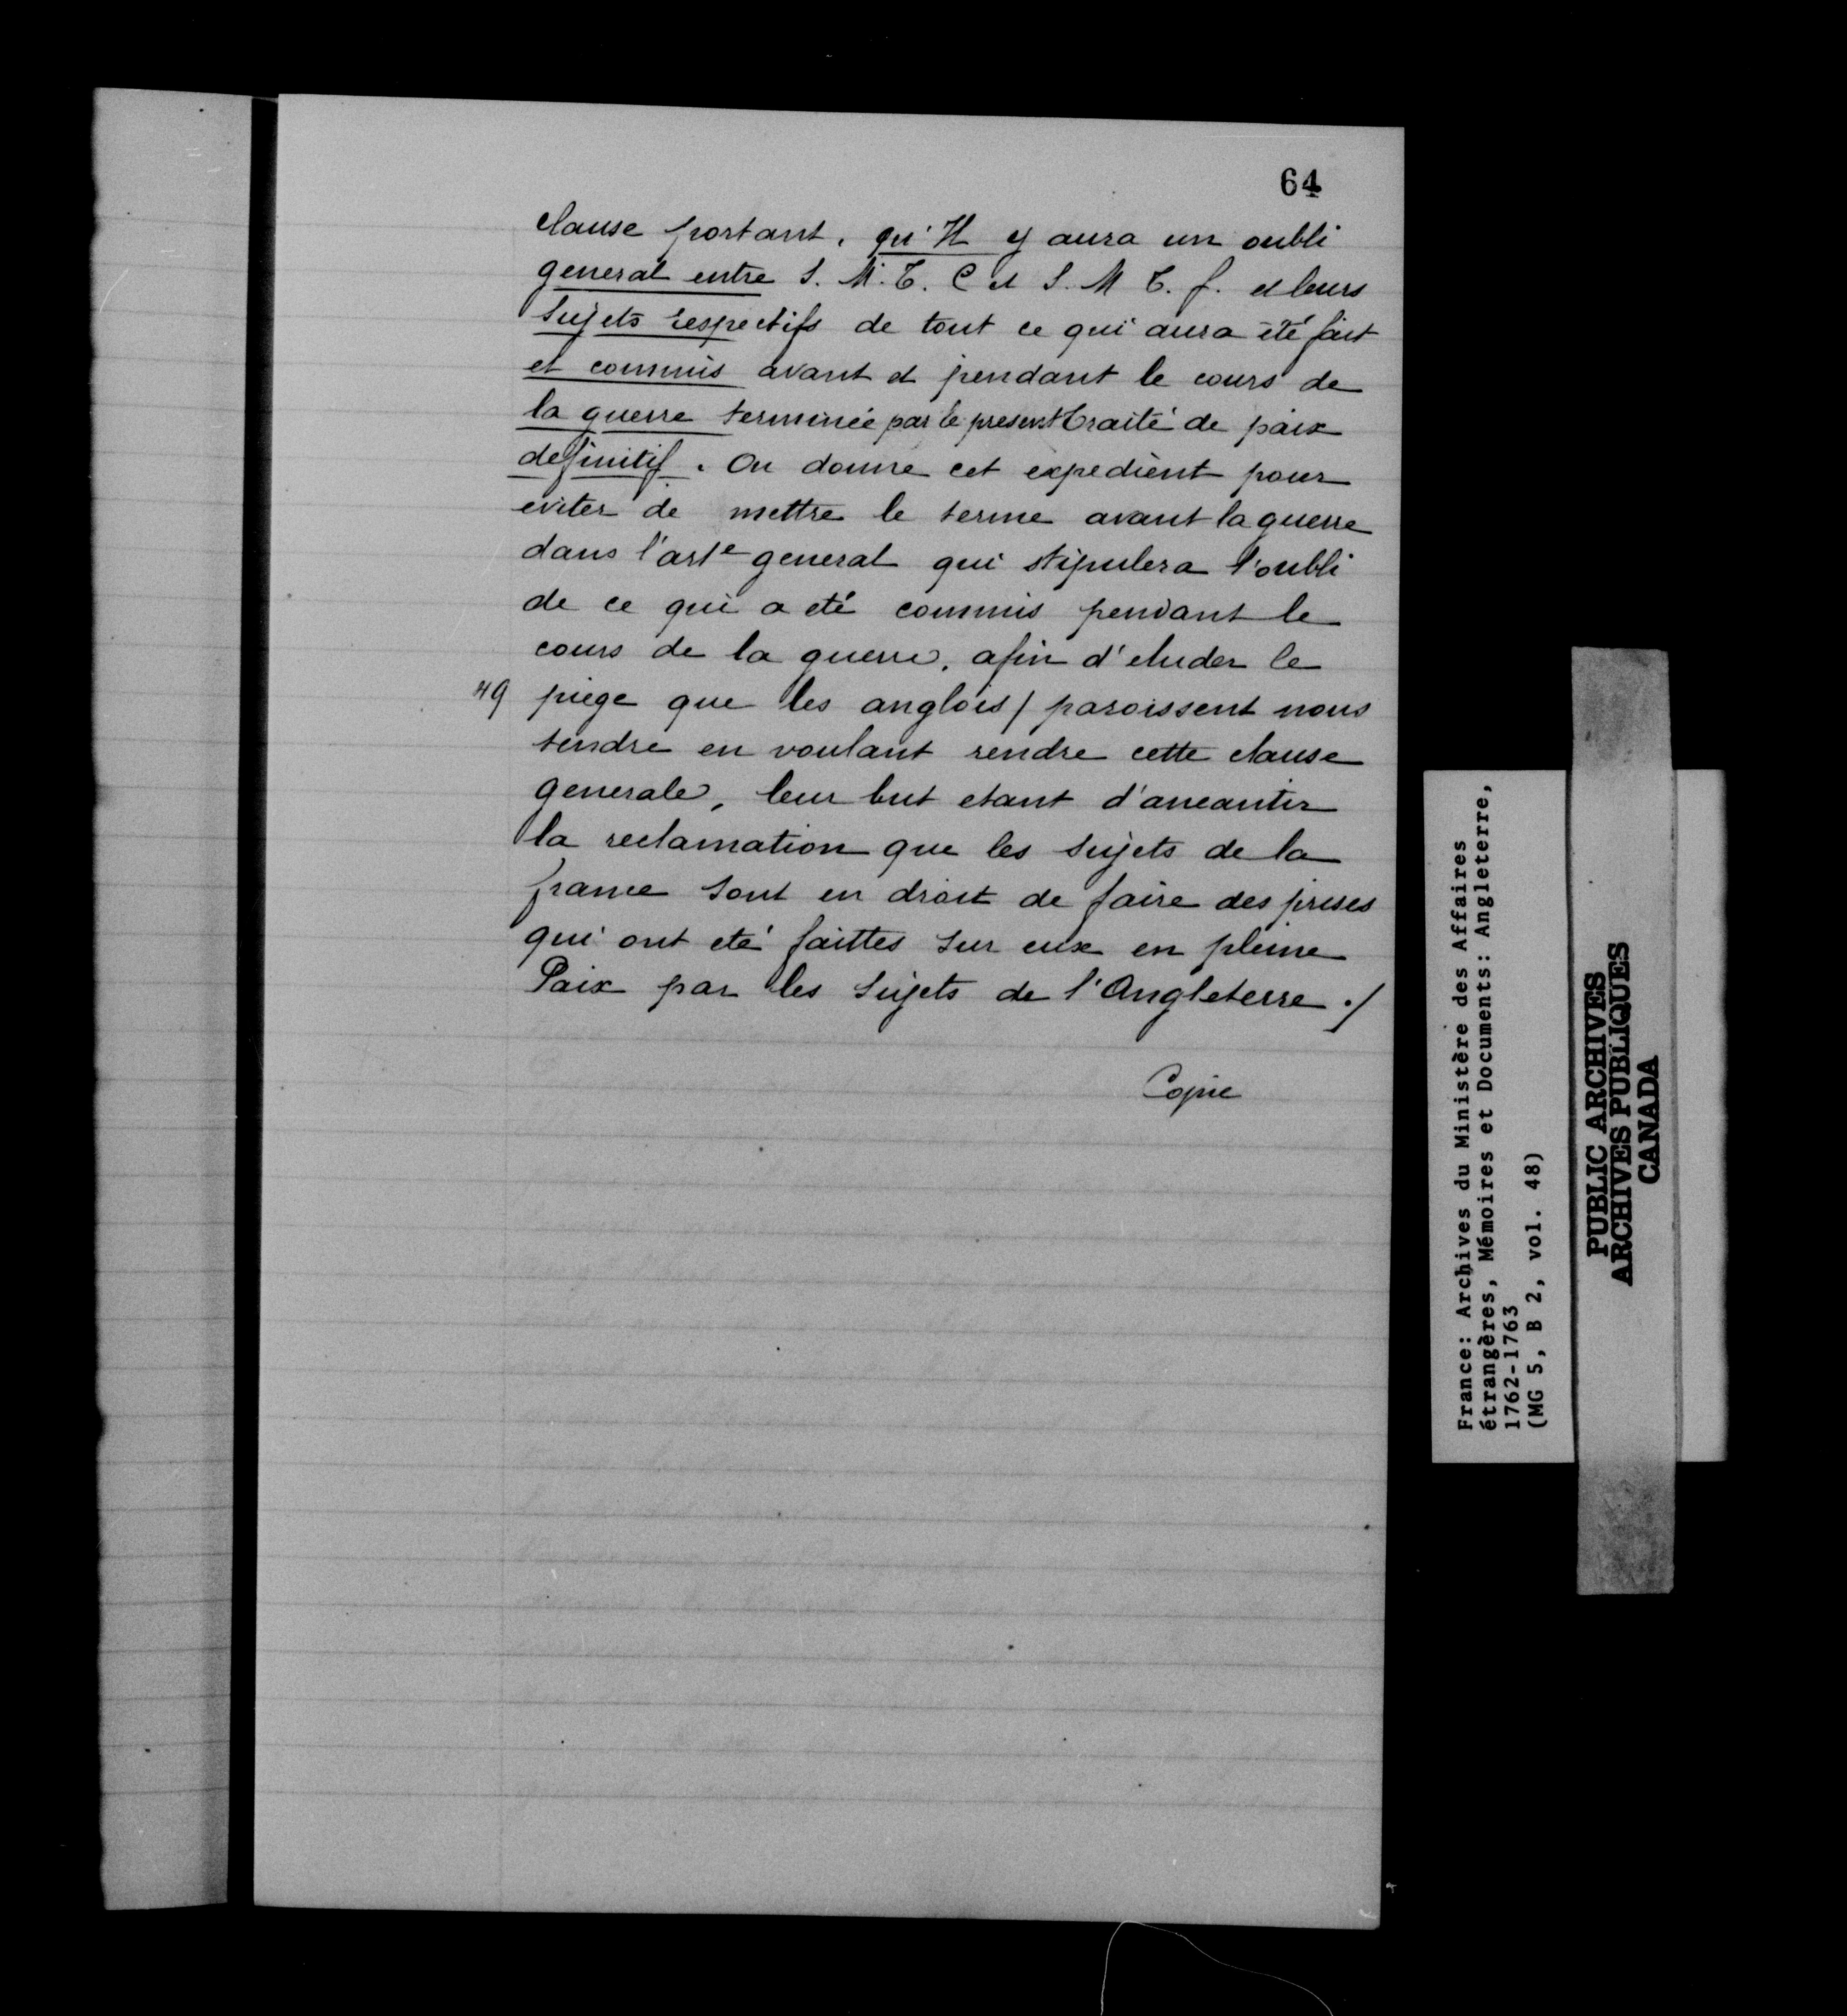 64
clause portant, qu'Il y aura un oubli
general entre S. M. T. C et S. M T. f. et leurs
Sujets respectifs de tout ce qui aura été fait
et commis avant et pendant le cours de
la guerre terminée par le present traité de paix
definitif. On donne cet expedient pour
eviter de mettre le terme avant la guerre
dans l'arte general qui stipulera l'oubli
de ce qui a eté commis pendant le
cours de la guerre, afin d'eluder le
49 piege que les anglois / paroissent nous
tendre en voulant rendre cette clause
generale, leur but etant d'aneantir
la reclamation que les sujets de la
france sont en droit de faire des prises
qui ont eté faittes sur eux en pleine
Paix par les sujets de l'Angleterre ./
Copie
France: Archives du Ministère des Affaires
étrangères, Mémoires et Documents: Angleterre,
1762-1763
(MG 5, B 2, vol. 48)
PUBLIC ARCHIVES
ARCHIVES PUBLIQUES
CANADA